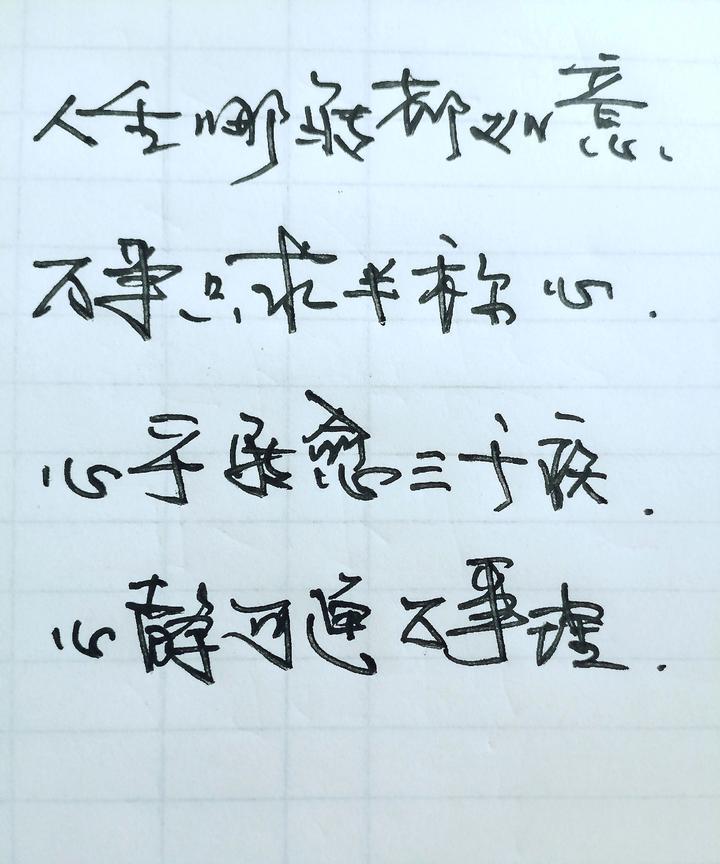 人生哪能都如意、
万事只求半称心.
心平能愈三千疾.
心静可通万事理.